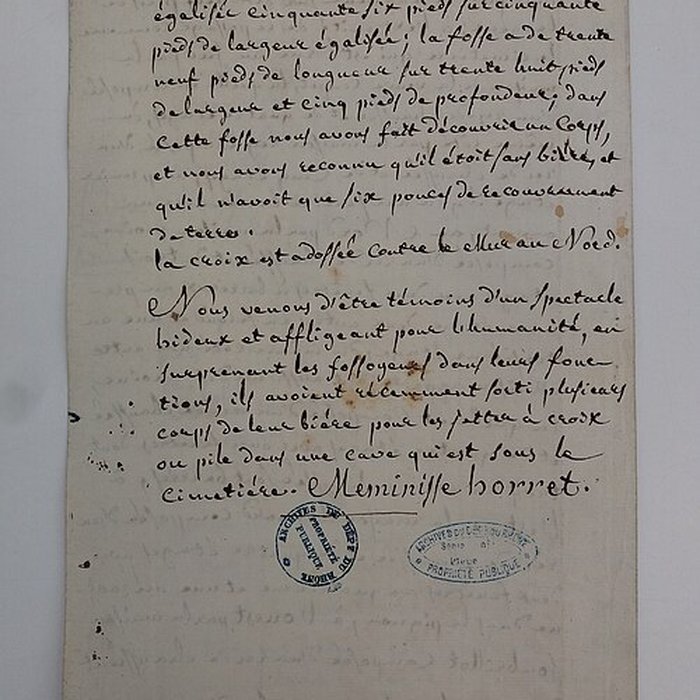 égalisée cinquante six pieds sur cinquante
pieds de largeur égalisée; la fosse a de trente
neuf pieds de longueur sur trente huit pieds
de largeur et cinq pieds de profondeur; dans
Cette fosse nous avons fait découvrir un Corps,
et nous avons reconnu qu'il étoit sans bière, et
qu'il n'avoit que six pouces de recouvrement
de terre.
la croix est adossée contre le Mur au Nord.
Nous venons d'être témoins d'un spectacle
hideux et affligeant pour l'humanité, en
surprenant les fossoyeurs dans leurs fonc-
tions, ils avoient récemment sorti plusieurs
corps de leur bière pour les jetter à croix
ou pile dans une cave qui est sous le
cimetière. Meminisse horret.
ARCHIVES DU DÉPT DU RHONE
PROPRIÉTÉ
PUBLIQUE
ARCHIVES DU RHONE
Série
PROPRIÉTÉ PUBLIQUE